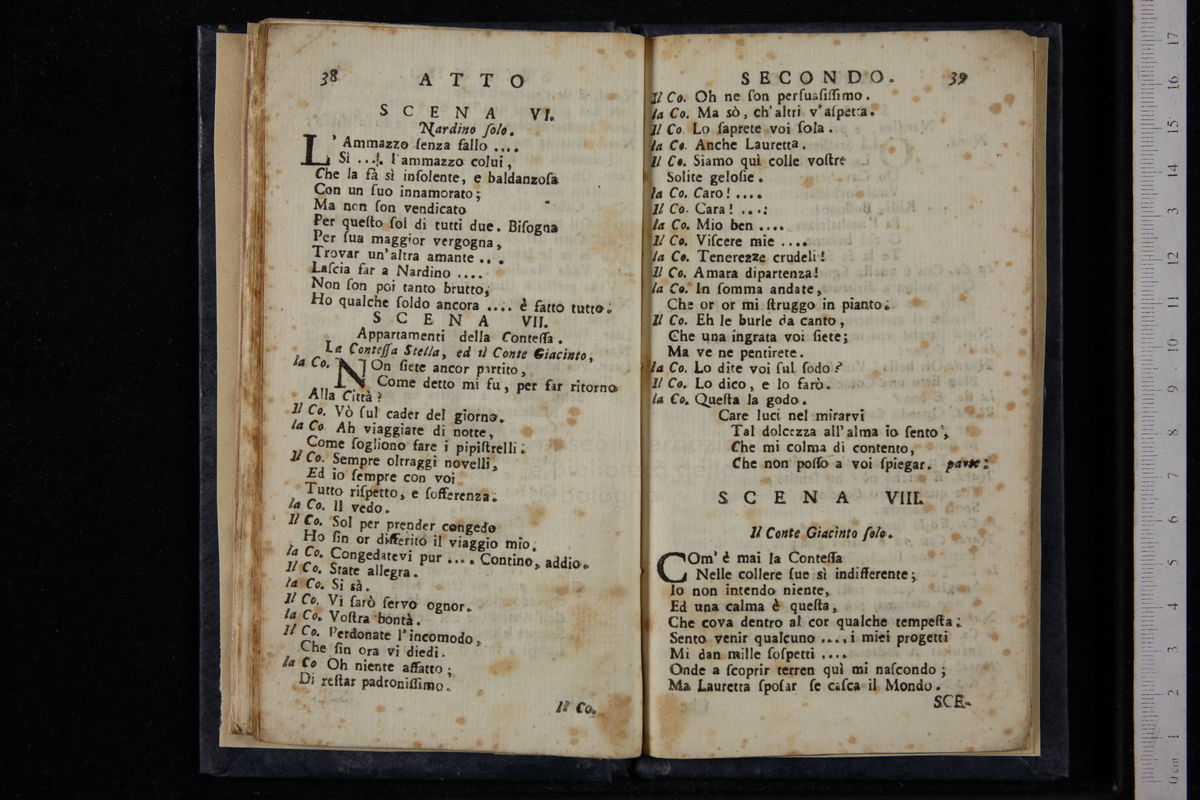 38 ATTO
SCENA VI.
Nardino ſolo.
L' Ammazzo ſenza fallo ....
Sì .... l'ammazzo colui,
Che la fà sì inſolente, e baldanzoſa
Con un ſuo innamorato;
Ma non ſon vendicato
Per queſto ſol di tutti due. Biſogna
Per ſua maggior vergogna,
Trovar un'altra amante ...
Laſcia far a Nardino ....
Non ſon poi tanto brutto,
Ho qualche ſoldo ancora .... è fatto tutto.
SCENA VII.
Appartamenti della Conteſſa.
La Conteſſa Stella, ed il Conte Giacinto,
la Co. NOn ſiete ancor partito,
Come detto mi fu, per far ritorno
Alla Città?
Il Co. Vò ſul cader del giorno.
la Co Ah viaggiate di notte,
Come ſogliono fare i pipiſtrelli.
Il Co. Sempre oltraggi novelli,
Ed io ſempre con voi
Tutto riſpetto, e ſofferenza.
la Co. Il vedo.
Il Co. Sol per prender congedo
Ho fin or differito il viaggio mio.
la Co. Congedatevi pur .... Contino, addio.
Il Co. State allegra.
la Co. Si sà.
Il Co. Vi ſarò ſervo ognor.
la Co. Voſtra bontà.
Il Co. Perdonate l'incomodo,
Che fin ora vi diedi.
la Co Oh niente affatto;
Di reſtar padroniſſimo.
Il Co.
SECONDO. 39
Il Co. Oh ne ſon perſuaſiſſimo.
la Co. Ma sò, ch'altri v'aſpetta.
Il Co Lo ſaprete voi ſola.
la Co. Anche Lauretta.
Il Co. Siamo quì colle voſtre
Solite geloſie.
la Co. Caro! ....
Il Co. Cara! ....
la Co. Mio ben ....
Il Co. Viſcere mie ....
la Co. Tenerezze crudeli!
Il Co. Amara dipartenza!
la Co. In ſomma andate,
Che or or mi ſtruggo in pianto.
Il Co. Eh le burle da canto,
Che una ingrata voi ſiete;
Ma ve ne pentirete.
la Co. Lo dite voi ſul ſodo?
Il Co. Lo dico, e lo farò.
la Co. Queſta la godo.
Care luci nel mirarvi
Tal dolcezza all'alma io ſento,
Che mi colma di contento,
Che non poſſo a voi ſpiegar. parte.
SCENA VIII.
Il Conte Giacinto ſolo.
COm' è mai la Conteſſa
Nelle collere ſue sì indifferente;
Io non intendo niente,
Ed una calma è queſta,
Che cova dentro al cor qualche tempeſta.
Sento venir qualcuno ...., i miei progetti
Mi dan mille ſoſpetti ....
Onde a ſcoprir terren quì mi naſcondo;
Ma Lauretta ſpoſar ſe caſca il Mondo.
SCE-